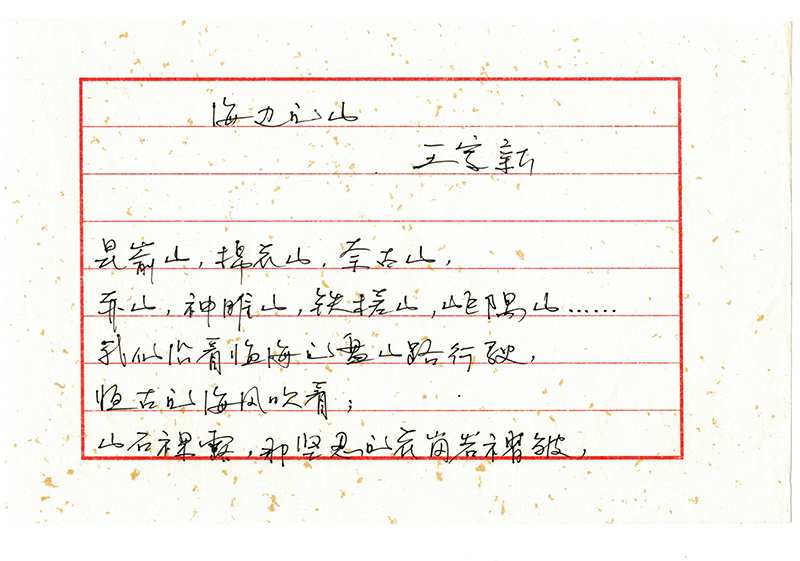 海边的山
王家新
昆嵛山，棉花山，奈古山，
山，神雕山，铁槎山，岠嵎山……
我们沿着临海的盘山路行驶，
恒古的海风吹着；
山石裸露，那坚忍的花岗岩褶皱，